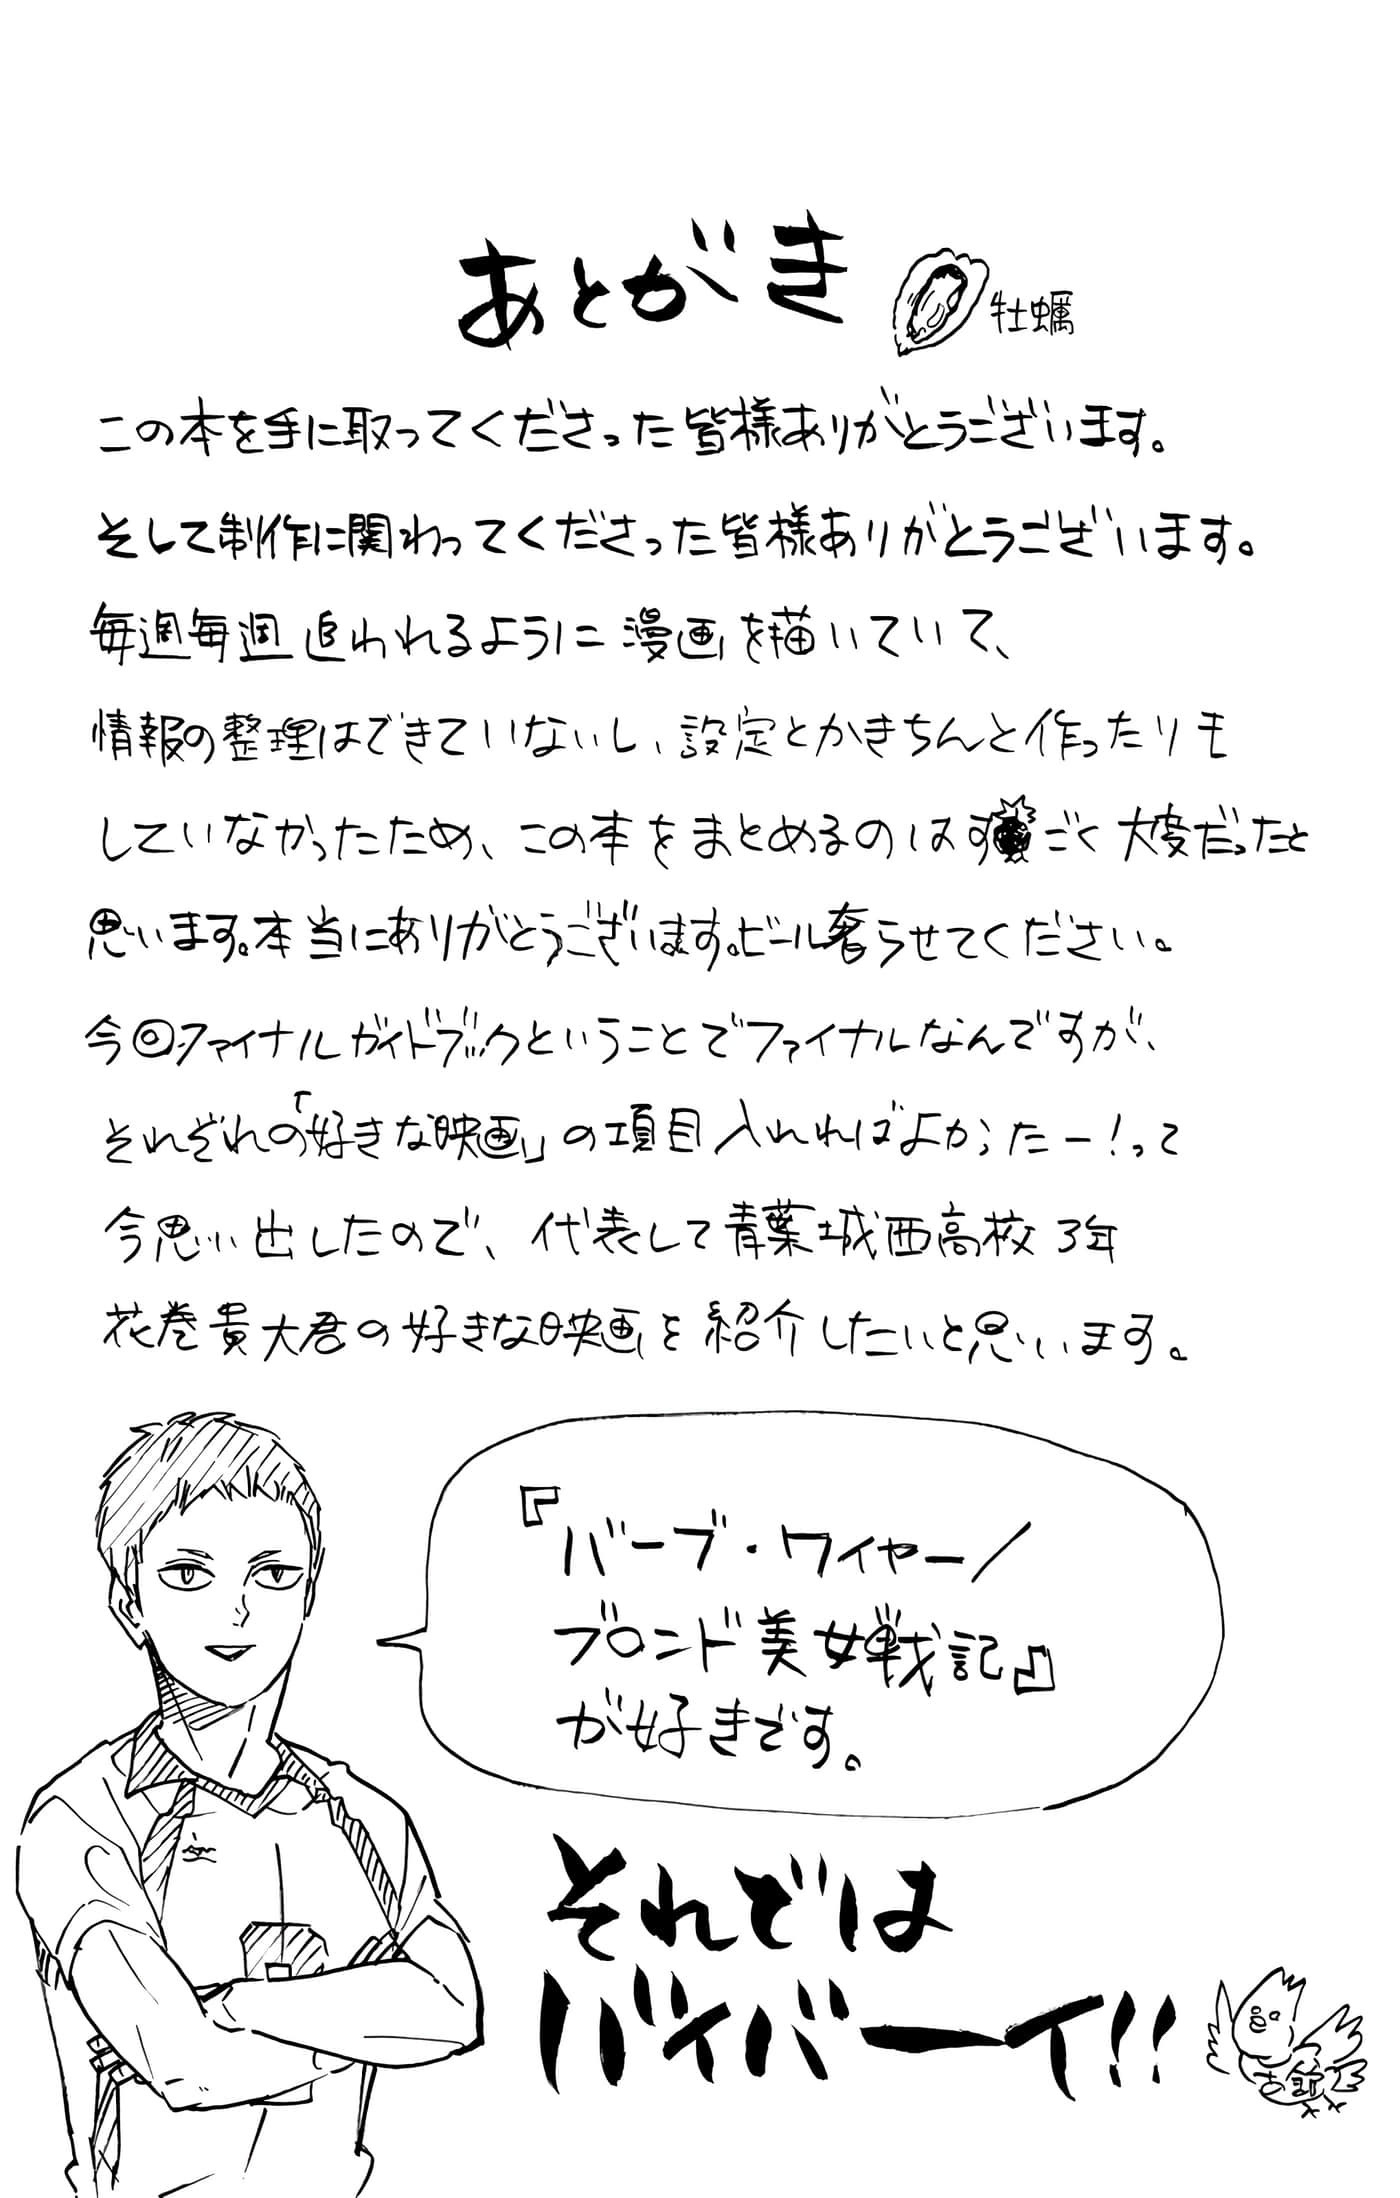 あとがき
牡蠣
この本を手に取ってくださった皆様ありがとうございます。
そして制作に関わってくださった皆様ありがとうございます。
毎週毎週追われるように漫画を描いていて、
情報の整理はできていないし、設定とかきちんと作ったりも
していなかったため、この本をまとめるのはすごく大変だったと
思います。本当にありがとうございます。ビール奢らせてください。
今回ファイナルガイドブックということでファイナルなんですが、
それぞれの「好きな映画」の項目入れればよかったー!って
今思い出したので、代表して青葉城西高校3年
花巻貴大君の好きな映画を紹介したいと思います。
『バーブ・ワイヤー/
ブロンド美女戦記』
が好きです。
それでは
バイバーイ!!
古舘